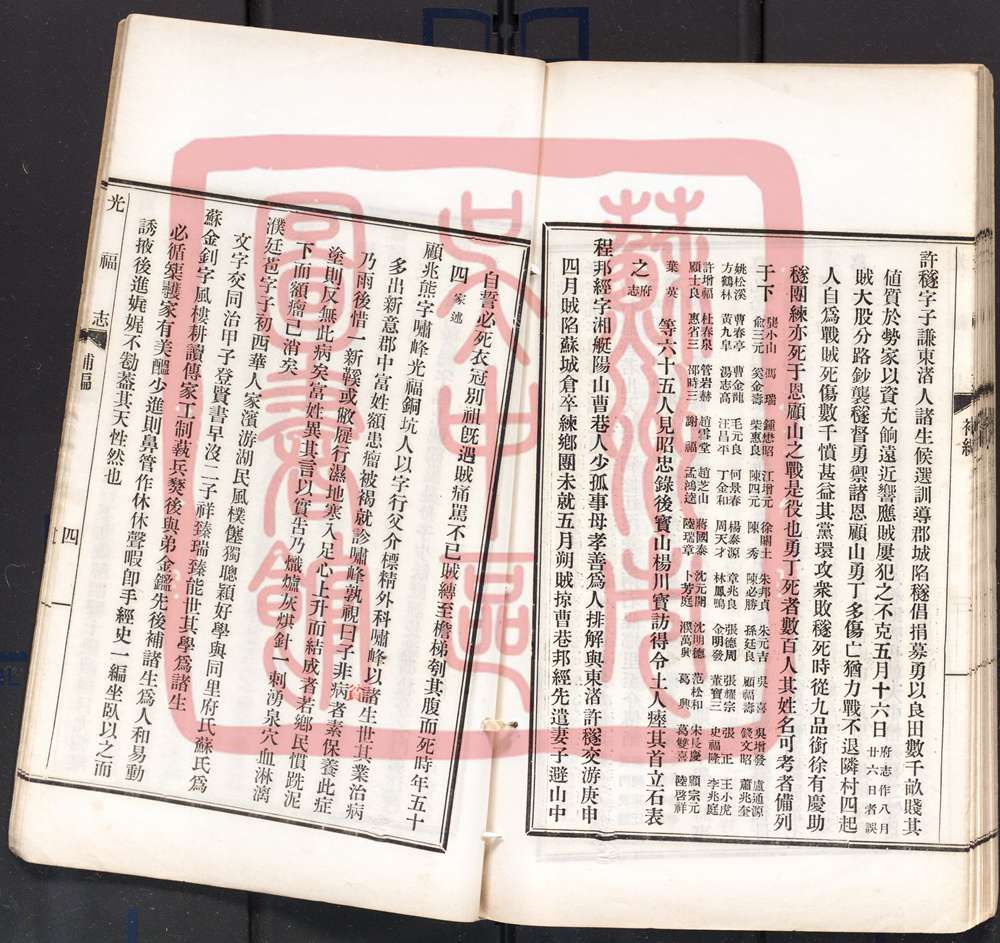 許䆳字子謙東渚人諸生候選訓導郡城陷䆳倡捐募勇以良田數千畝賤其
値質於勢家以資充餉遠近響應賊屢犯之不克五月十六日府志作八月廿六日者誤
賊大股分路鈔襲䆳督勇禦諸恩顧山勇丁多傷亡猶力戰不退隣村四起
人自爲戰賊死傷數千憤甚益其黨環攻衆敗䆳死時從九品銜徐有慶助
䆳團練亦死于恩顧山之戰是役也勇丁死者數百人其姓名可考者備列
于下
龔小山 馮瑞 鍾懋昭 江增元 徐關土 朱邦貞 朱元吉 吳喜 吳增發 盧通源
俞三元 奚金壽 柴惠良 陳四元 陳秀 陳必勝 孫廷良 顧福壽 錢文昭 蕭兆奎
姚松溪 曹春亭 曹金龍 毛元良 何景春 楊泰源 章兆良 張德周 張耀宗 張正 王小虎
方鶴林 黃九皐 湯志高 汪昌平 丁金和 周天才 林鳳鳴 金明發 董寶三 史福隆 李兆庭
許增福 杜春泉 管岩赫 趙雪堂 趙芝山 蔣國泰 沈元開 沈明德 范松和 朱長慶 顧宗元
顧士良 惠省三 邵時三 謝福 孟鴻逵 陸瑞章 卞芳庭 濮萬興 葛興 葛雙喜 陸啓祥
葉英
等六十五人見昭忠錄後寶山楊川實訪得令土人瘞其首立石表
之府志
程邦經字湘艇陽山曹巷人少孤事母孝善爲人排解與東渚許䆳交游庚申
四月賊陷蘇城倉卒練鄉團未就五月朔賊掠曹巷邦經先遣妻子避山中
自誓必死衣冠别祖旣遇賊痛罵不已賊縛至檐梯刳其腹而死時年五十
四家述
顧兆熊字嘯峰光福銅坑人以字行父介標精外科嘯峰以諸生世其業治病
多出新意郡中富姓額患瘤被褐就診嘯峰孰視曰子非病者素保養此症
乃雨後惜一新鞵或敝屣行濕地寒入足心上升而結成者若鄉民慣跣泥
塗則反無此病矣富姓異其言以實告乃熾爐灰烘針一刺湧泉穴血淋漓
下而額瘤已消矣
濮廷苞字子初西華人家濱游湖民風樸僿獨聰穎好學與同里府氏蘇氏爲
文字交同治甲子登賢書早沒二子祥臻瑞臻能世其學爲諸生
蘇金釗字風樓耕讀傳家工制埶兵燹後與弟金鑑先後補諸生爲人和易動
必循榘䕶家有美醞少進則鼻管作休休聲暇卽手經史一編坐臥以之而
誘掖後進娓娓不勌葢其天性然也
光福志
補編
四
蘇州市吳中區圖書館